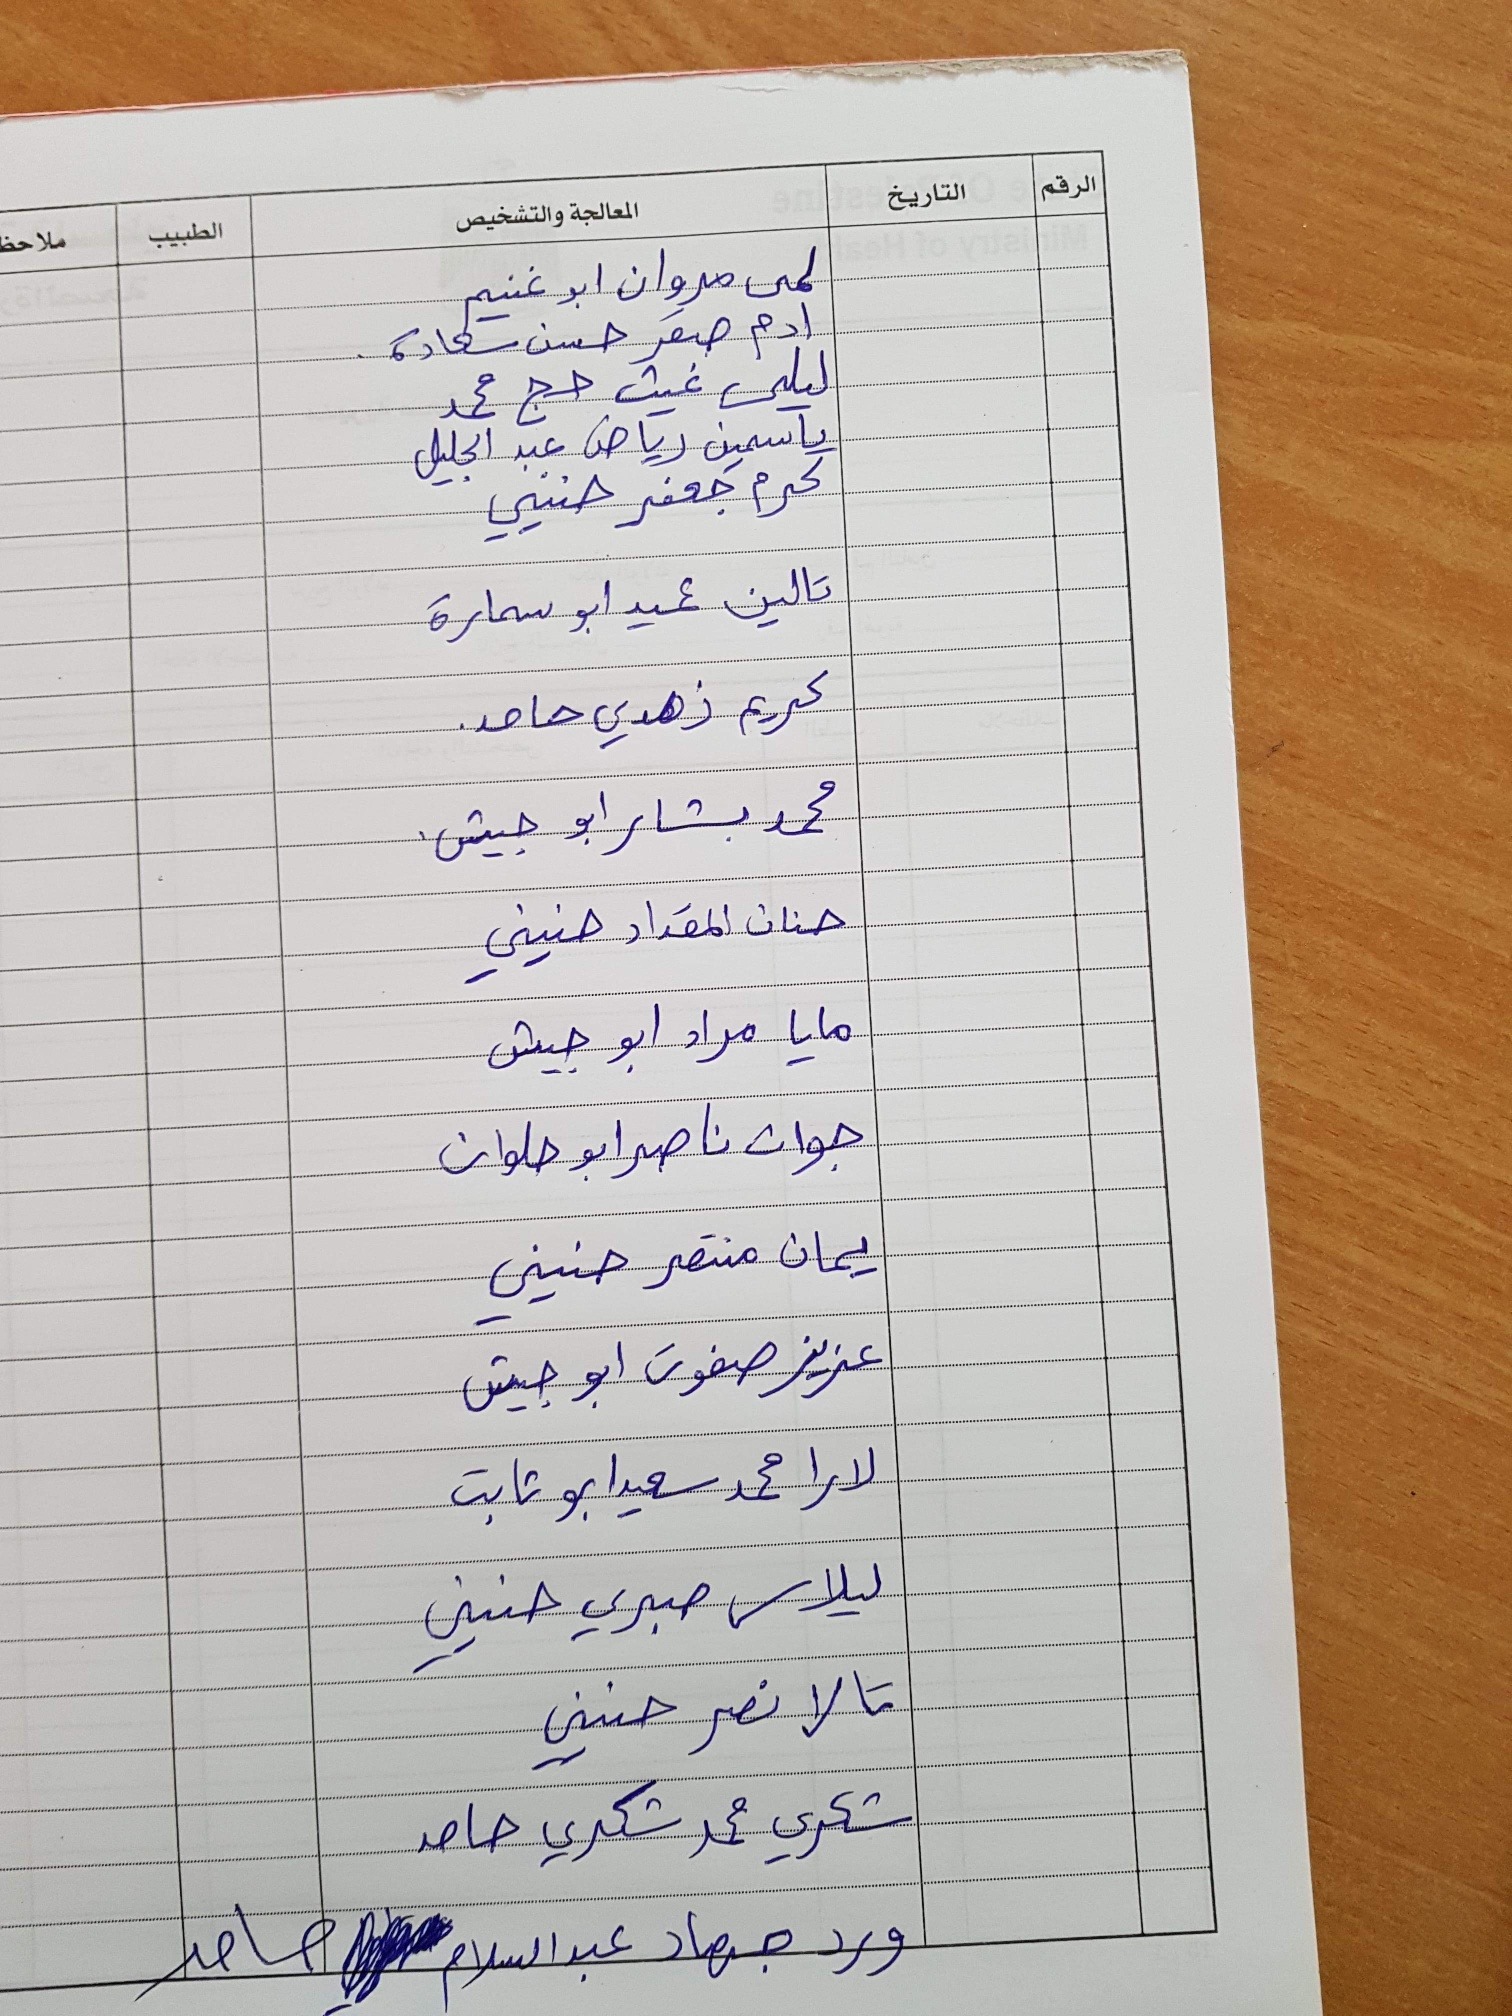 الرقم التاريخ المعالجة والتشخيص الطبيب
لمى مروان ابو غنيم
ادم صقر حسن سعادة.
ليلى غيث حج محمد
ياسمين رياض عبد الجليل
كرم جعفر حنيني
تالين عميد ابو سمارة
كريم زهدي حامد.
محمد بشار ابو جيش.
حنان المقداد حنيني
مايا مراد ابو جيش
جوان ناصر ابو حلوان
يمان منتصر حنيني
عزيز صفوت ابو جيش
لارا محمد سعيد ابو ثابت
ليلاس صبري حنيني
تالا نصر حنيني
شكري محمد شكري حامد
ورد جهاد عبد السلام حامد